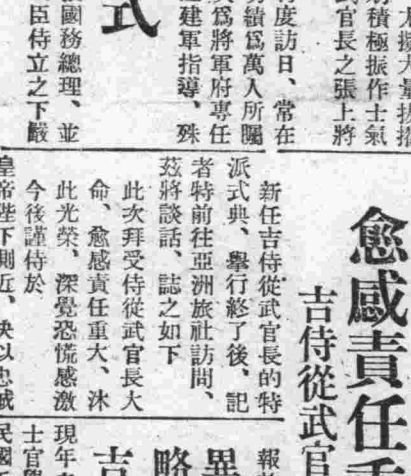 積極振作士氣
武官長之張上將
度訪日、常在
績爲萬人所矚
爲將軍府專任
建軍指導、殊
式
國務總理、並
臣侍立之下嚴
愈感責任重
吉侍從武官
新任吉侍從武官長的特
派式典、舉行終了後、記
者特前往亞洲旅社訪問、
茲將談話、誌之如下
此次拜受侍從武官長大
命、愈感責任重大、沐
此光榮、深覺恐慌感激
今後謹侍於
皇帝陛下側近、決以忠誠
報
異
略
吉
現年
士官學
民國